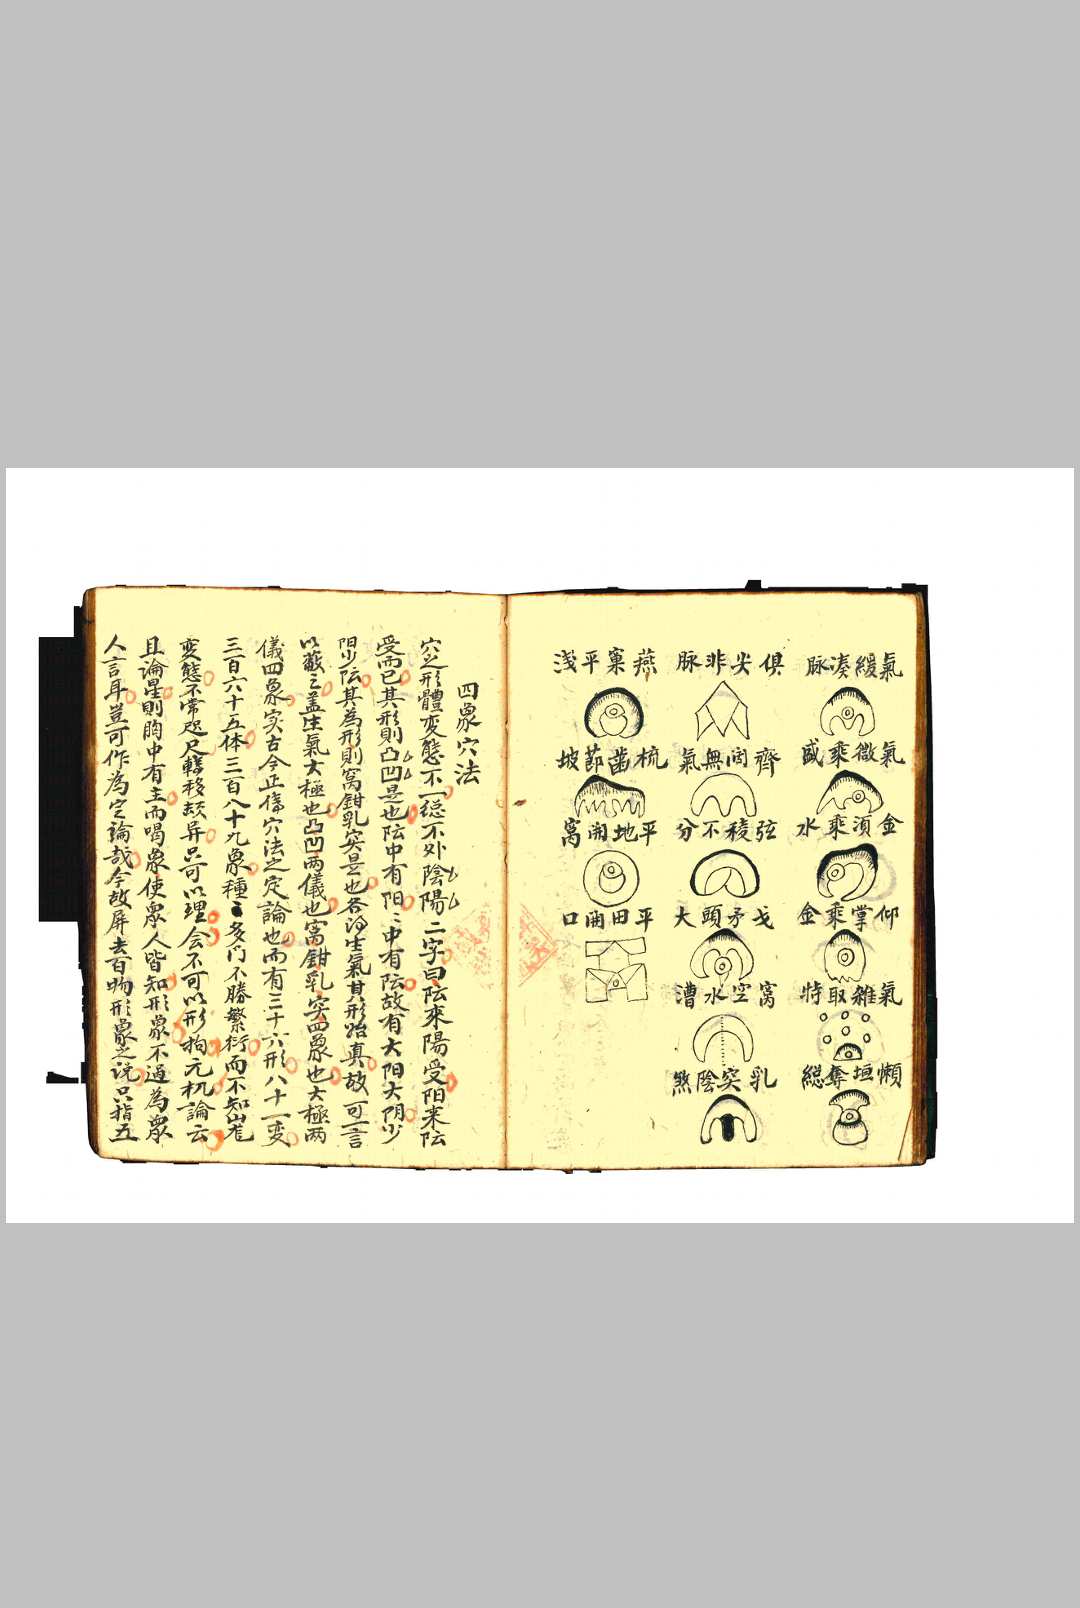 氣緩湊脉
氣微乘盛
金湏乘水
仰掌乘金
氣雜取特
懶垣奪総
俱尖非脉
齊㵎無氣
弦稜不分
戈矛頭大
窩空水漕
乳突陰煞
燕窠平淺
梳齒莭坡
平地開窩
平田開口
四象穴法
穴之形體變態不一総不外陰陽二字曰阮來陽受阳來阮
受而已其形則凸凹是也阮中有阳〻中有阮故有大阳大阴少
阳少阮其為形則窩鉗乳突是也各得生氣其形始真故可一言
以蔽之盖生氣太極也凸凹两儀也窩鉗乳突四象也太極两
儀四象实古今正偹穴法之定論也而有三十六形八十一变
三百六十五体三百八十九象種〻多门不勝繁衍而不知山龙
变態不常咫尺轉移頦异只可以理会不可以形拘元机論云
且論星則胸中有主而喝象使眾人皆知形象不过為眾
人言耳豈可作為定論哉今故屏去百物形象之说只指五